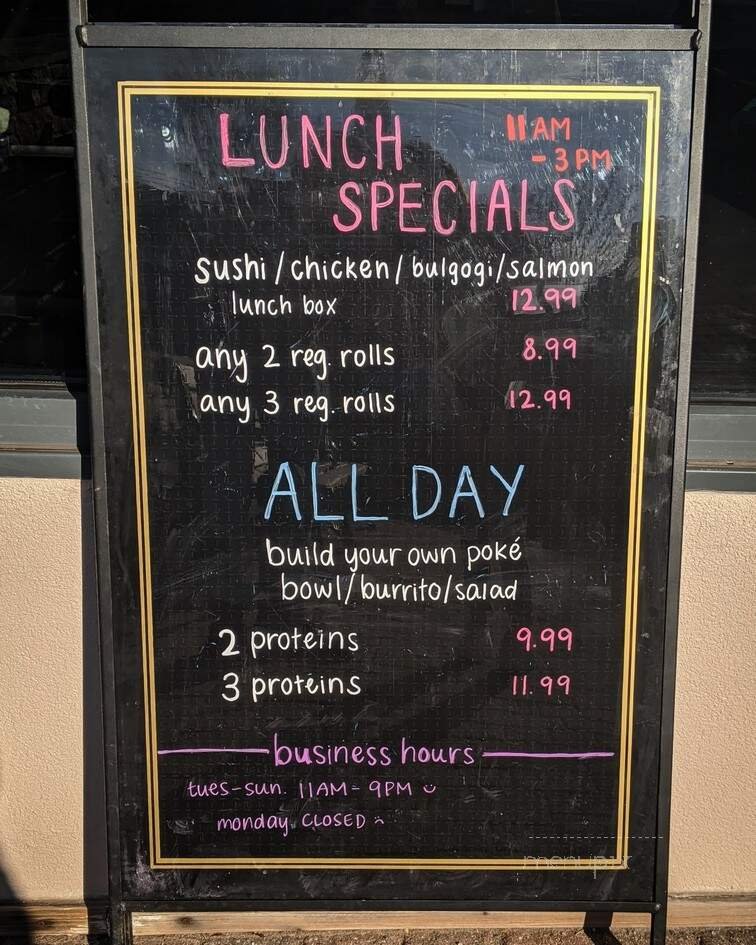 LUNCH 11 AM
- 3 PM
SPECIALS
sushi/chicken/bulgogi/salmon
lunch box 12.99
any 2 reg. rolls 8.99
any 3 reg. rolls 12.99
ALL DAY
build your own poké
bowl/burrito/salad
2 proteins 9.99
3 proteins 11.99
business hours
tues-sun. 11AM - 9PM
monday. CLOSED
menupix